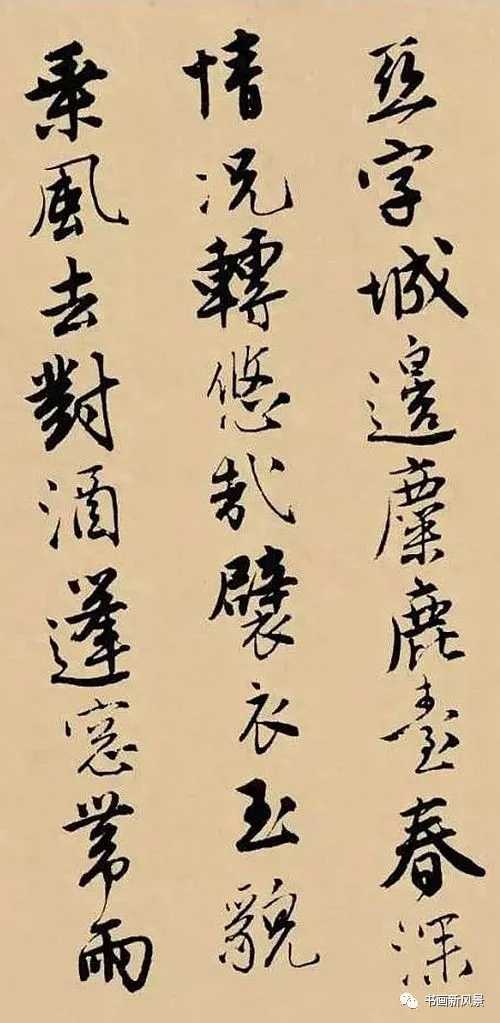 亞字城邊麋鹿臺春深
情況轉悠哉襞衣玉貌
乘風去對酒蓬窓帶雨
书画新风景